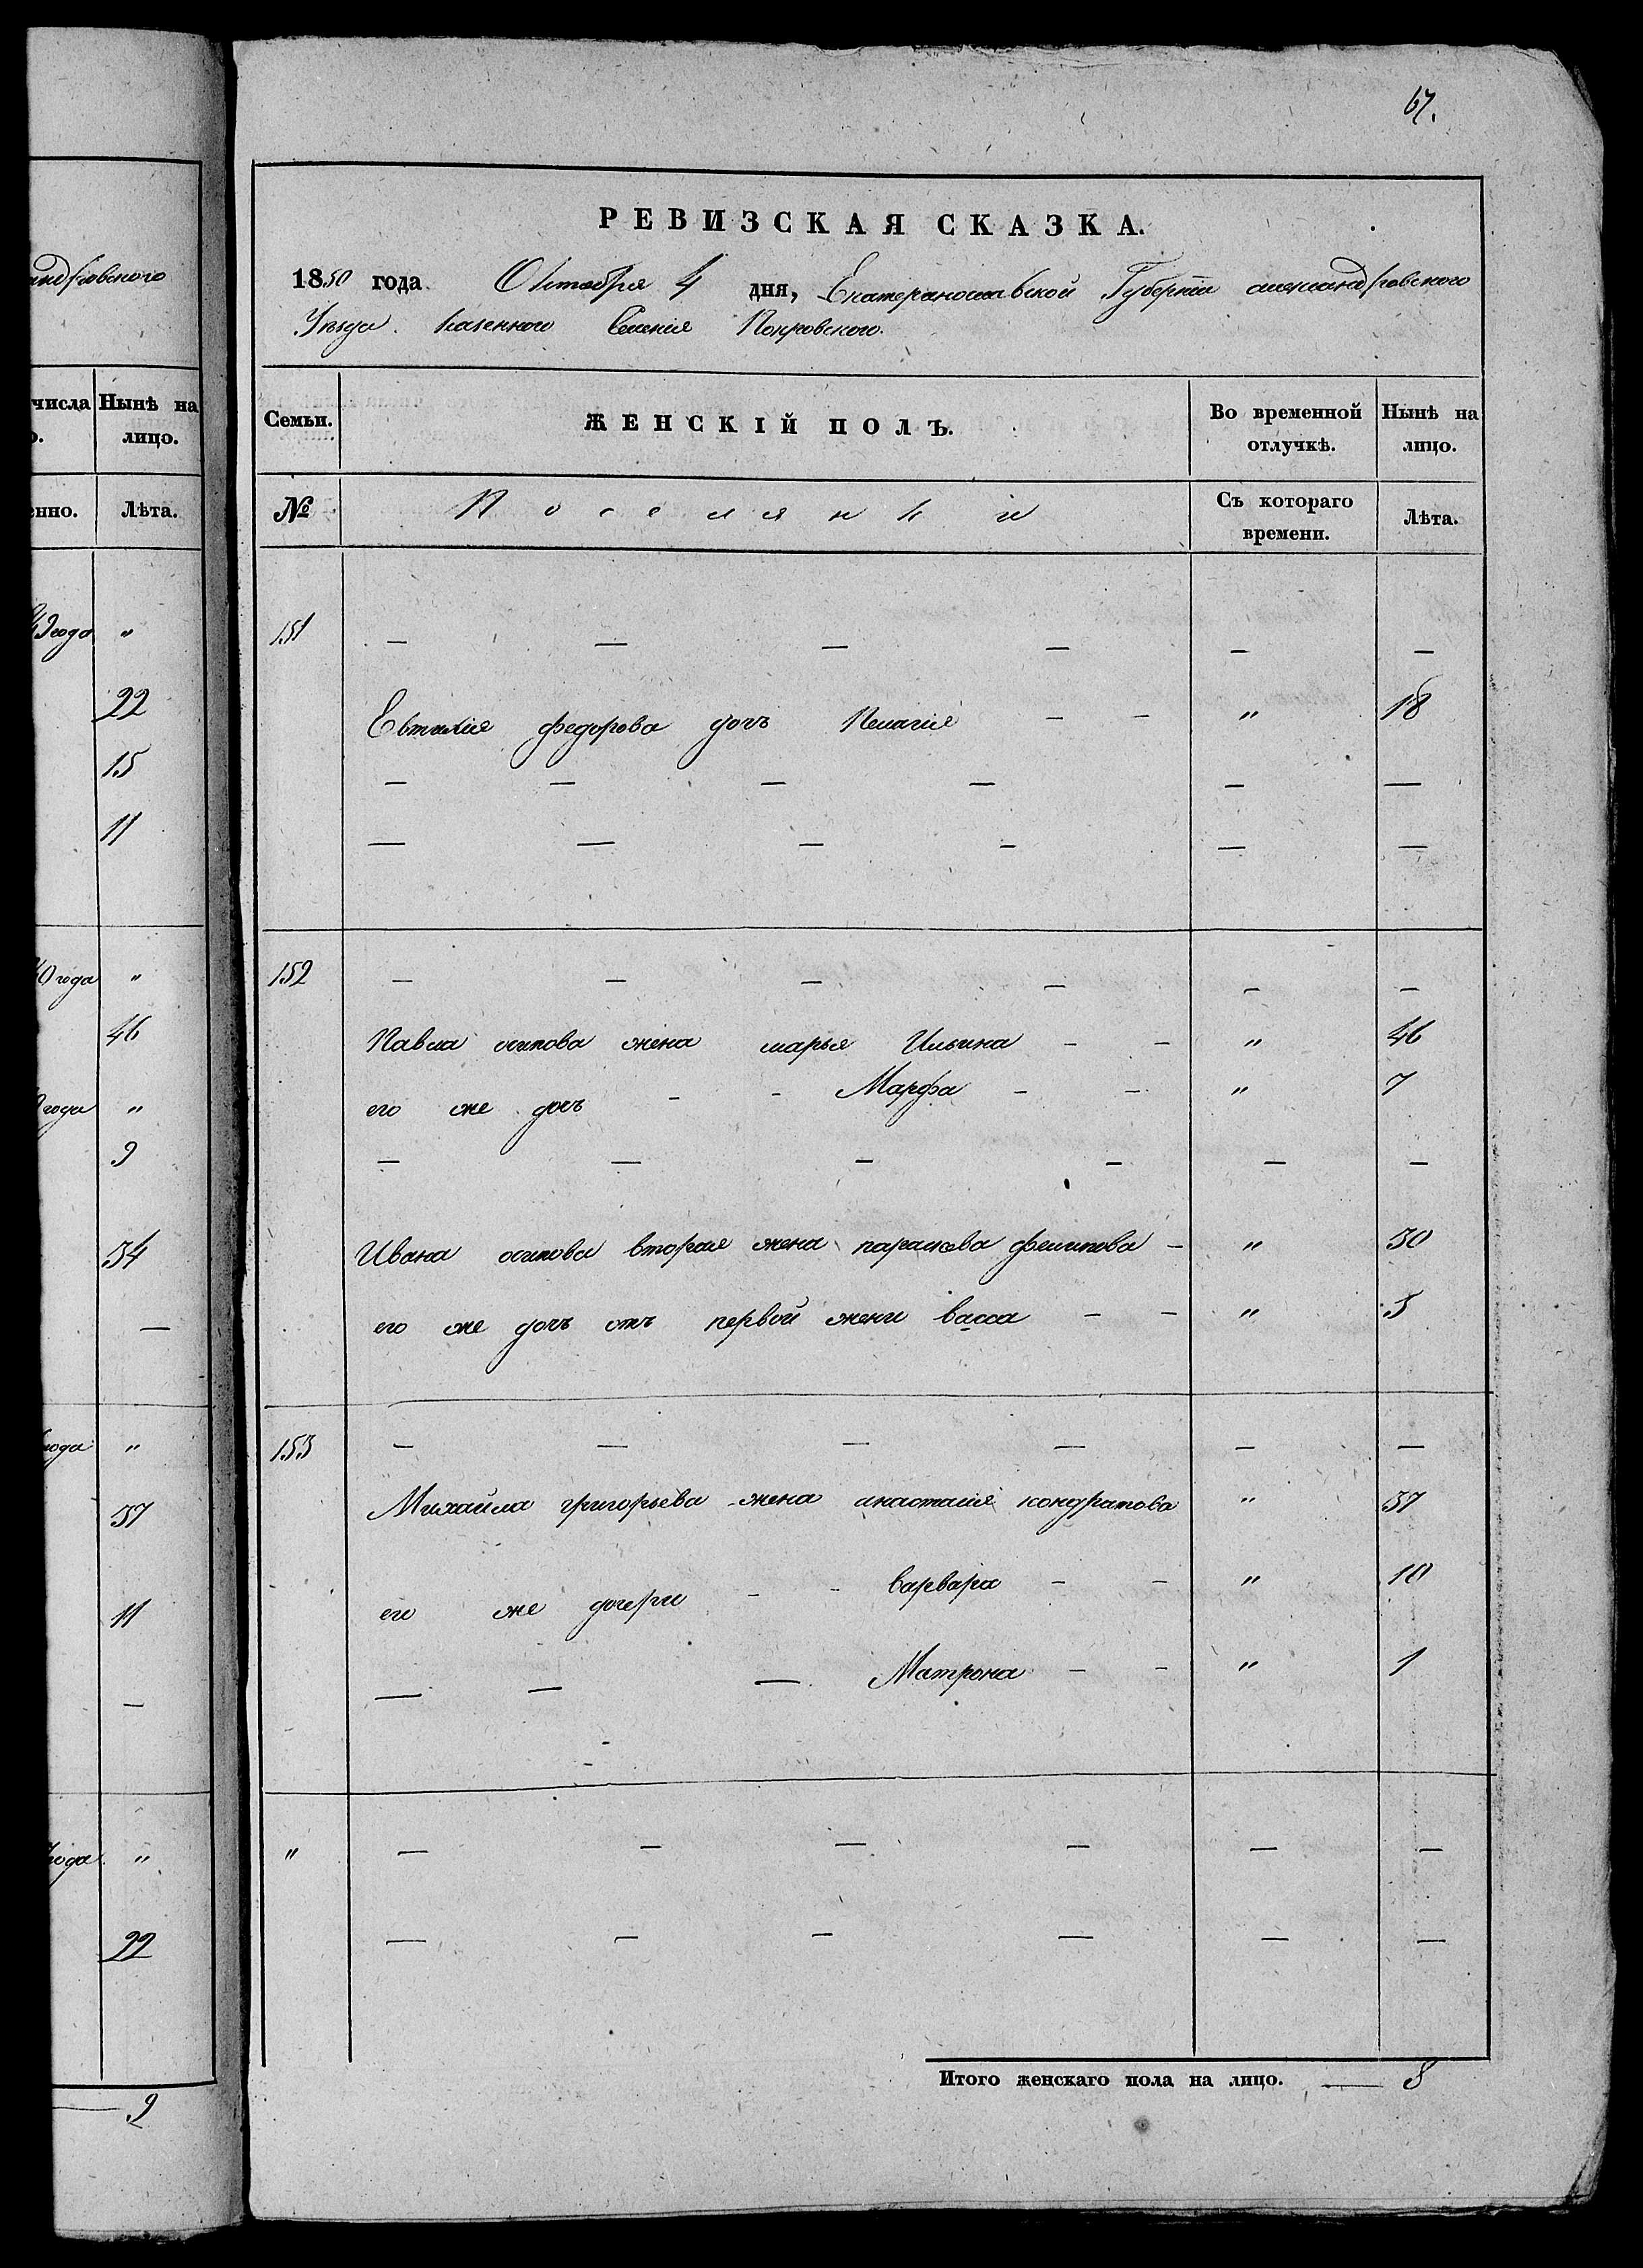 67.
РЕВИЗСКАЯ СКАЗКА.
1850 года Октября 4 дня, Екатериославской Губернии александровского
Уезда казенного Селения Покровского.
андровского
числа Нынѣ на лицо.
Семьи. ЖЕНСКІЙ ПОЛЪ. Во временной отлучкѣ. Нынѣ на лицо.
Лѣта.
№ Поселянки Съ котораго времени. Лѣта.
года "
151 — — — — — —
22
Евтихия федорова дочь Пелагия - - " 18
15
— — — — — —
11
— — — — — —
года "
152 — — — — — —
46
Павла осипова жена марья Ильина - - " 46
года "
его же дочь - - Марфа - - " 7
9
— — — — — —
34
Ивана осипова вторая жена параскева филипова - " 30
—
его же дочь отъ первой жени васса - - " 5
года "
153 — — — — — —
37
Михайла григорьева жена анастасия кондратова " 37
11
его же дочери - - варвара - - " 10
—
— — — Матрона - - " 1
года "
" — — — — — —
22
— — — — — —
Итого женскаго пола на лицо. — 8
— 9